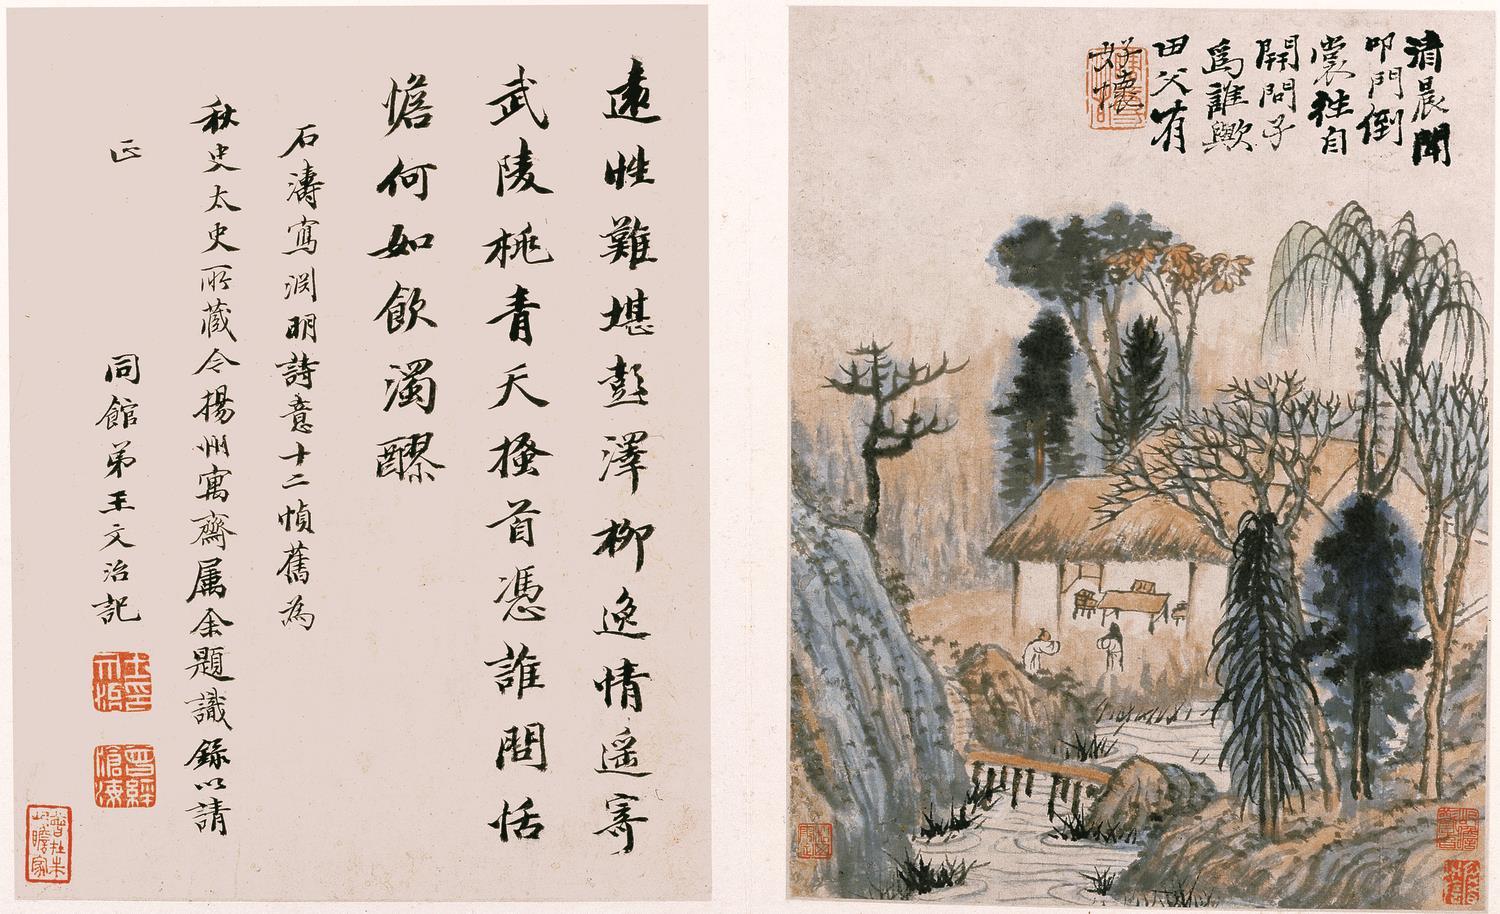 清晨聞
叩門倒
裳往自
開問子
爲誰歟
田父有
好懷
遠性難堪彭澤柳逸情遙寄
武陵桃青天搔首憑誰問恬
憺何如飲濁醪
石濤寫渊明詩意十二幀舊為
秋史太史所藏今揚州寓齋属余題識錄以請
正
同館弟王文治記
王印文治
曾經滄海